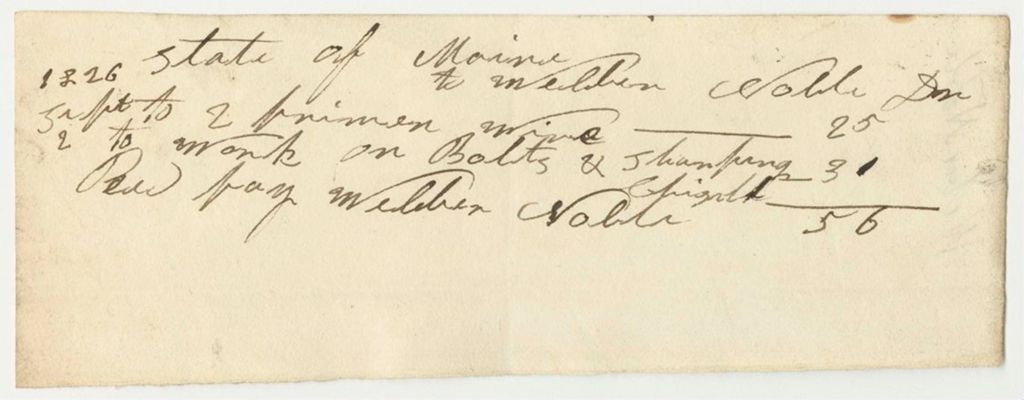 State of Maine
to Welden Noble Dr
1826
Sept to 2 primen wire 25
2 to work on Bolts & Sharping Chisels 31
Recd pay Welden Noble 56